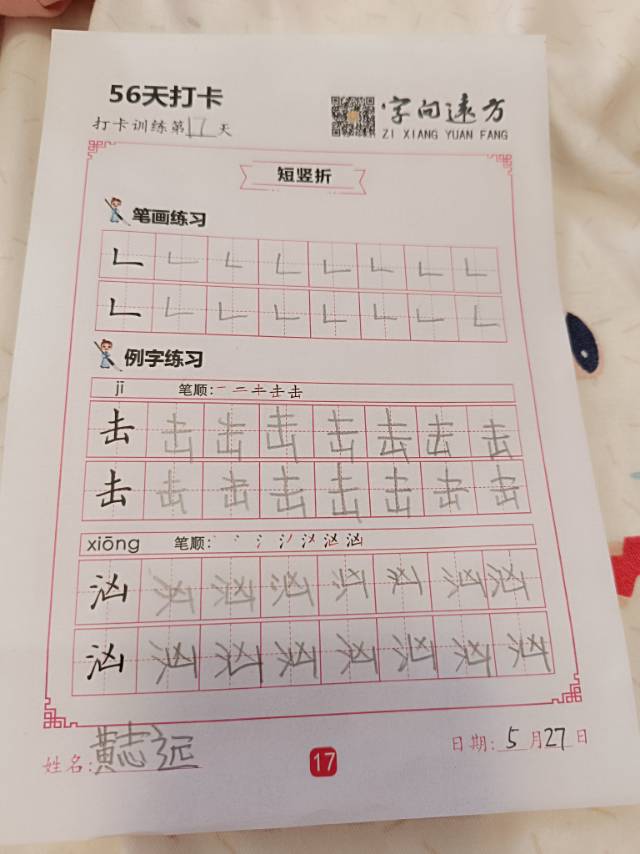 56天打卡
字向远方
打卡训练第17天
ZI XIANG YUAN FANG
短竖折
笔画练习
例字练习
jī 笔顺: 一 二 キ 击 击
击 击 击 击 击 击 击 击
击 击 击 击 击 击 击 击
xiōng 笔顺: 丶 冫 氵 汹 汹
汹 汹 汹 汹 汹 汹 汹 汹
汹 汹 汹 汹 汹 汹 汹 汹
姓名: 黄志远
17
日期: 5月27日